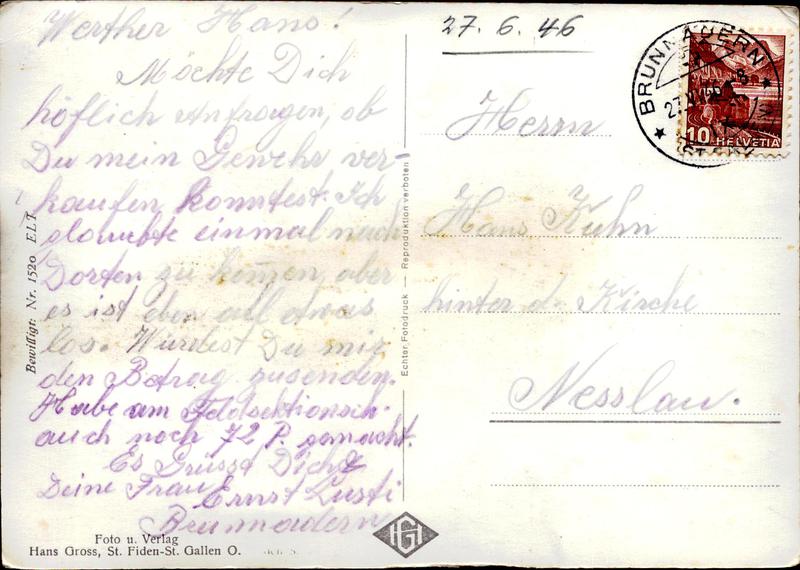 Werther Hans!
Möchte Dich
höflich Anfragen, ob
Du mein Gewehr ver-
kaufen konntest. Ich
glaubte einmal nach
Dorten zu kommen, aber
es ist eben all etwas
los. Würdest Du mir
den Betrag zusenden.
Habe am Feldsektionsch.
auch noch 72 P. gemacht.
Es Grüsst Dich &
Deine Frau Ernst Lusti
Brunnadern
Foto u. Verlag
Hans Gross, St. Fiden-St. Gallen O.
Bewilligt: Nr. 1520 E.L.T.
Echter Fotodruck — Reproduktion verboten
HG
27. 6. 46
BRUNNADERN
10 HELVETIA
Herrn
Hans Kuhn
hinter d. Kirche
Nesslau.